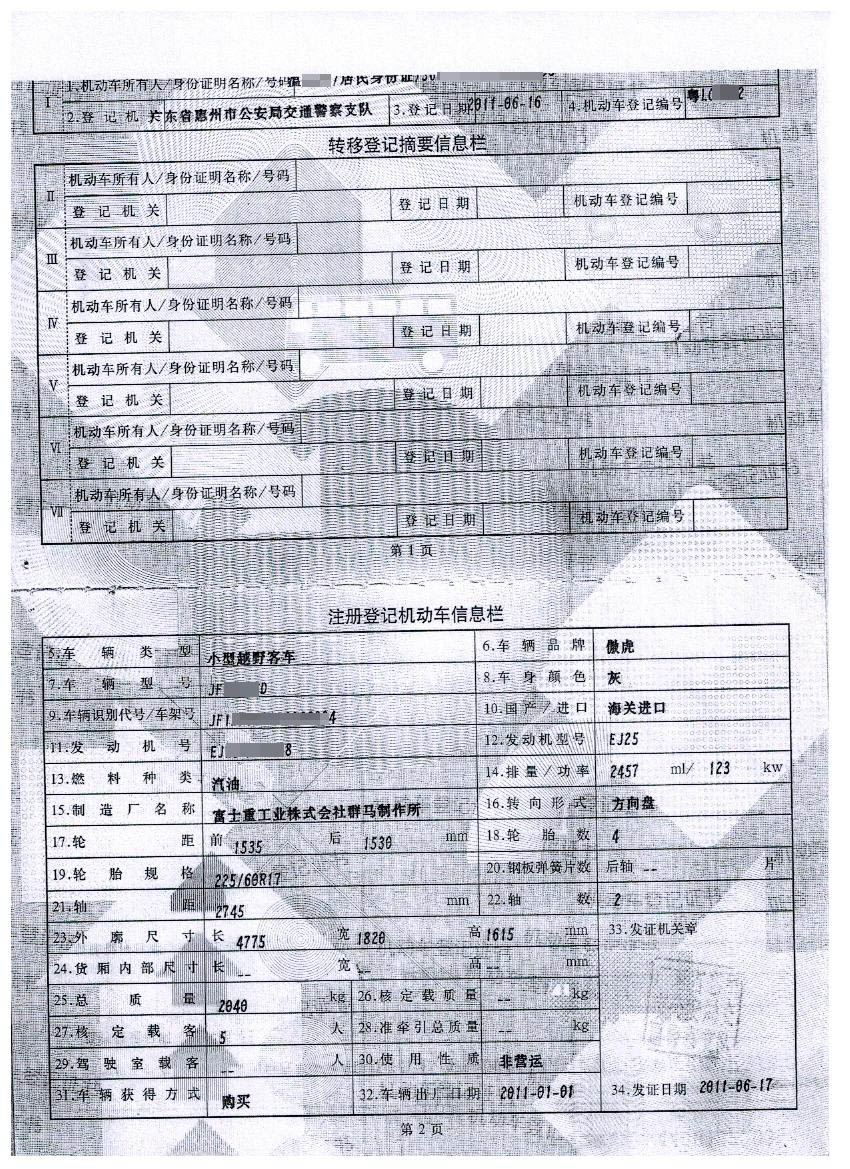 1.机动车所有人/身份证明名称/号码 /居民身份证/
I
2.登记机 广东省惠州市公安局交通警察支队 3.登记日期 2011-06-16 4.机动车登记编号 粤L 2
转移登记摘要信息栏
II 机动车所有人/身份证明名称/号码
登记机关 登记日期 机动车登记编号
III 机动车所有人/身份证明名称/号码
登记机关 登记日期 机动车登记编号
IV 机动车所有人/身份证明名称/号码
登记机关 登记日期 机动车登记编号
V 机动车所有人/身份证明名称/号码
登记机关 登记日期 机动车登记编号
VI 机动车所有人/身份证明名称/号码
登记机关 登记日期 机动车登记编号
VII 机动车所有人/身份证明名称/号码
登记机关 登记日期 机动车登记编号
第1页
注册登记机动车信息栏
5.车辆类型 小型越野客车 6.车辆品牌 傲虎
7.车辆型号 JF D 8.车身颜色 灰
9.车辆识别代号/车架号 JF1 4 10.国产/进口 海关进口
11.发动机号 EJ 8 12.发动机型号 EJ25
13.燃料种类 汽油 14.排量/功率 2457 ml/ 123 kw
15.制造厂名称 富士重工业株式会社群马制作所 16.转向形式 方向盘
17.轮距 前 1535 后 1530 mm 18.轮胎数 4
19.轮胎规格 225/60R17 20.钢板弹簧片数 后轴 -- 片
21.轴距 2745 mm 22.轴数 2
23.外廓尺寸 长 4775 宽 1820 高 1615 mm 33.发证机关章
24.货厢内部尺寸 长 -- 宽 -- 高 -- mm
25.总质量 2040 kg 26.核定载质量 -- kg
27.核定载客 5 人 28.准牵引总质量 -- kg
29.驾驶室载客 -- 人 30.使用性质 非营运
31.车辆获得方式 购买 32.车辆出厂日期 2011-01-01 34.发证日期 2011-06-17
第2页